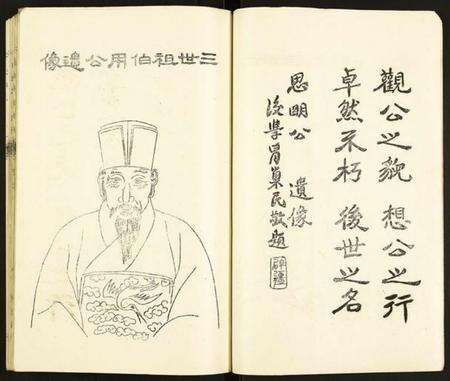 觀公之貌 想公之行
卓然不朽 後世之名
思明公 遺像
後學胃巢民敬題
三世祖伯用公遺像